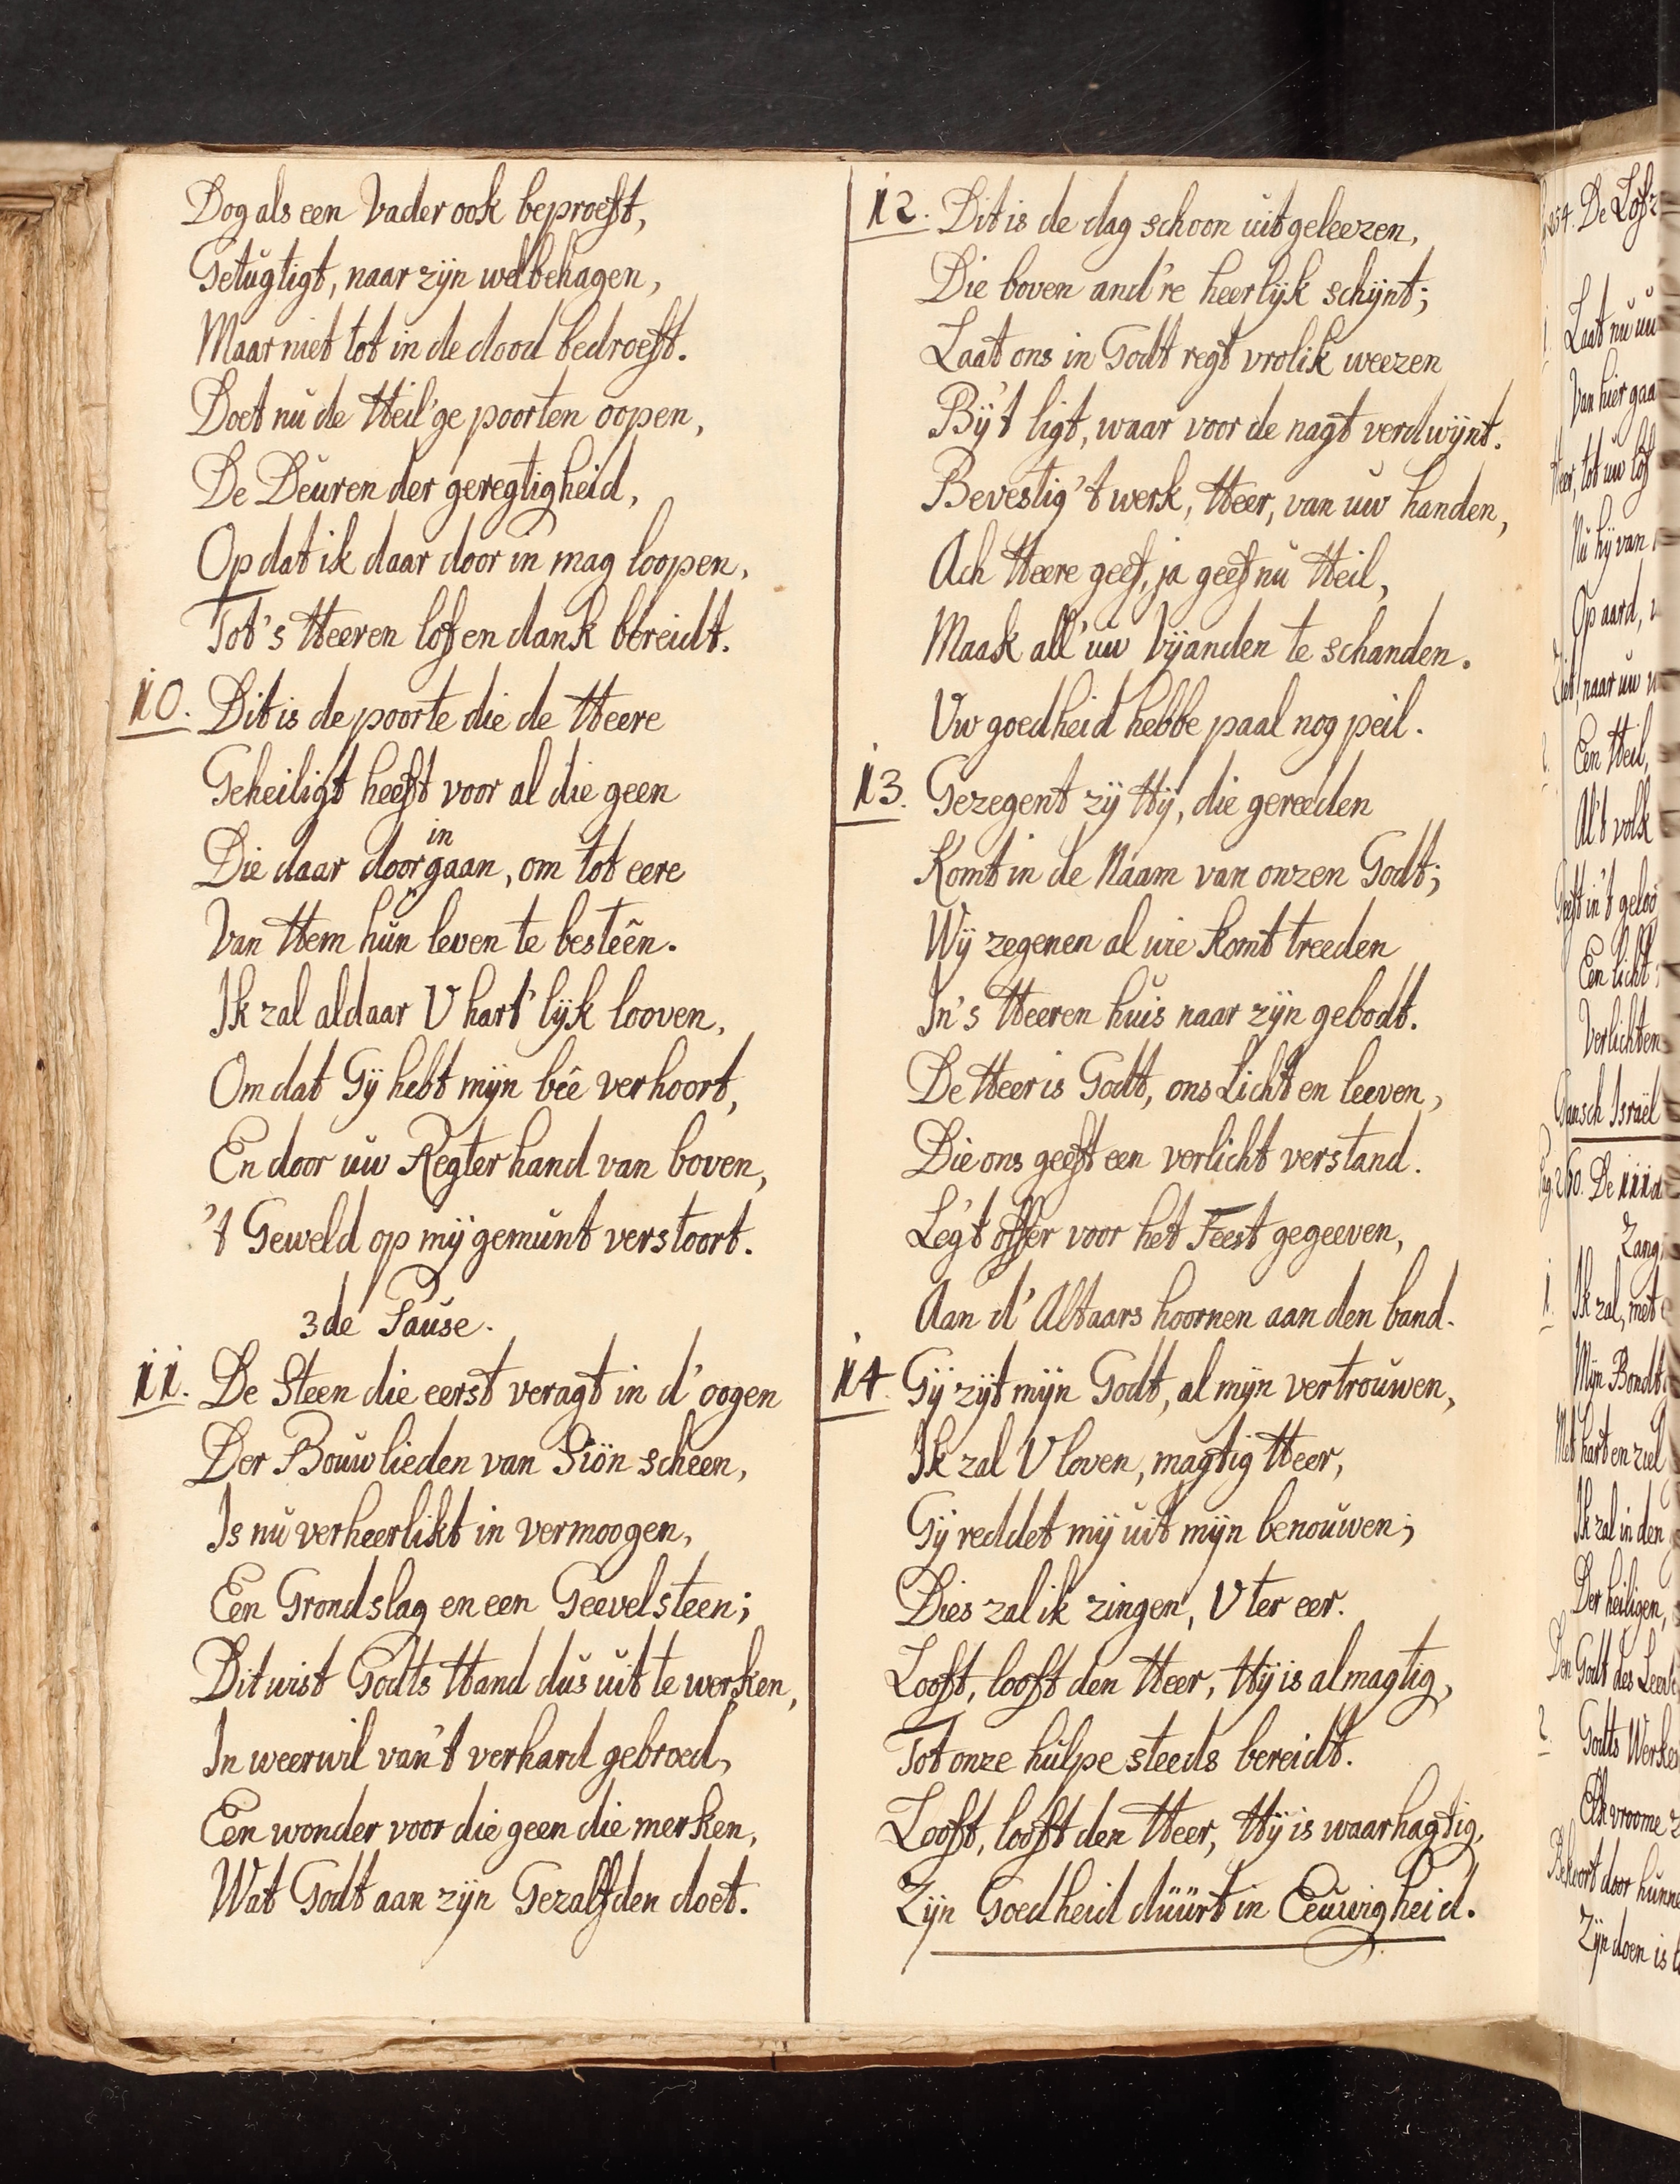 Dog als een Vader ook beproeft,
Getugtigt, naar zijn welbehagen,
Maar niet tot in de dood bedroeft.
Doet nu de Heil'ge poorten oopen,
De Deuren der geregtigheid,
Op dat ik daar door in mag loopen,
Tot 's Heeren lof en dank bereidt.
10. Dit is de poorte die de Heere
Geheiligt heeft voor al die geen
in
Die daar doorgaan, om tot eere
Van Hem hun leven te besteên.
Ik zal aldaar U hart'lijk looven,
Om dat Gij hebt mijn beê verhoort,
En door uw Regter hand van boven,
't Geweld op mij gemunt verstoort.
3de Pause.
11. De Steen die eerst veragt in d' oogen
Der Bouwlieden van Siön scheen,
Is nu verheerlikt in vermoogen,
Een Grondslag en een Geevelsteen;
Dit wist Godts Hand dus uit te werken,
In weerwil van 't verhard gebroed,
Een wonder voor die geen die merken,
Wat Godt aan zijn Gezalfden doet.
12. Dit is de dag schoon uitgeleezen,
Die boven and're heerlijk schijnt;
Laat ons in Godt regt vrolik weezen
Bij 't ligt, waar voor de nagt verdwijnt.
Bevestig 't werk, Heer, van uw handen,
Ach Heere geef, ja geef nu Heil,
Maak all' uw Vijanden te schanden.
Uw goedheid hebbe paal nog peil.
13. Gezegent zij Hij, die gereeden
Komt in de Naam van onzen Godt;
Wij zegenen al wie komt treeden
In 's Heeren huis naar zijn gebodt.
De Heer is Godt, ons Licht en leeven,
Die ons geeft een verlicht verstand.
Leg 't offer voor het Feest gegeeven,
Aan d' Altaars hoornen aan den band.
14. Gij zijt mijn Godt, al mijn vertrouwen,
Ik zal U loven, magtig Heer,
Gij reddet mij uit mijn benouwen;
Dies zal ik zingen, U ter eer.
Looft, looft den Heer, Hij is almagtig,
Tot onze hulpe steeds bereidt.
Looft, looft den Heer, Hij is waarhagtig,
Zijn Goedheid düürt in Eeuwigheid.
254. De Lof
Laat nu uw
Van hier gaa
Heer, tot uw lof
Nu hij van
Op aard,
Ziet, naar uw
Een Heil,
Al 't volk
Geeft in 't geloo
Een licht
Verlichten
Gansch Israël
260. De
Zang
1. Ik zal, met
Mijn Bondt
Met hart en ziel
Ik zal in den
Der heiligen,
Den Godt des Leev
2. Godts Werke
Elk vroome
Bekoort door hunne
Zijn doen is